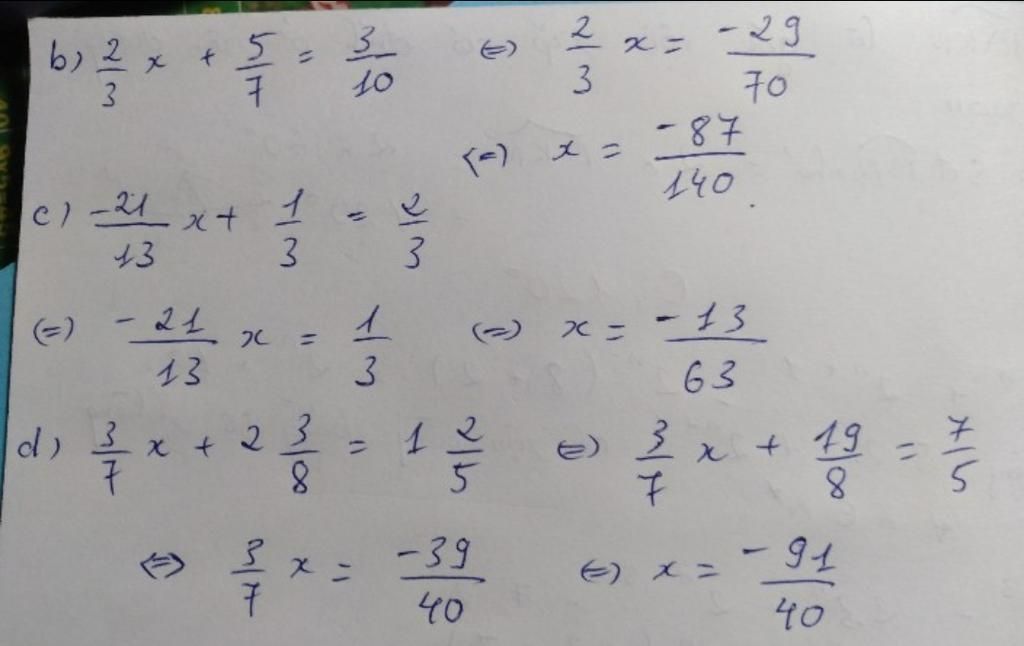 b) 2/3 x + 5/7 = 3/10 (=) 2/3 x = -29/70
(=) x = -87/140.
c) -21/13 x + 1/3 = 2/3
(=) -21/13 x = 1/3 (=) x = -13/63
d) 3/7 x + 2 3/8 = 1 2/5 (=) 3/7 x + 19/8 = 7/5
(=) 3/7 x = -39/40 (=) x = -91/40